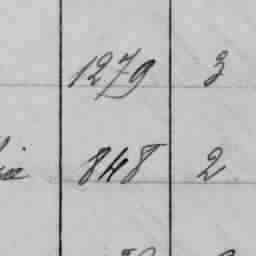 1279 3
848 2